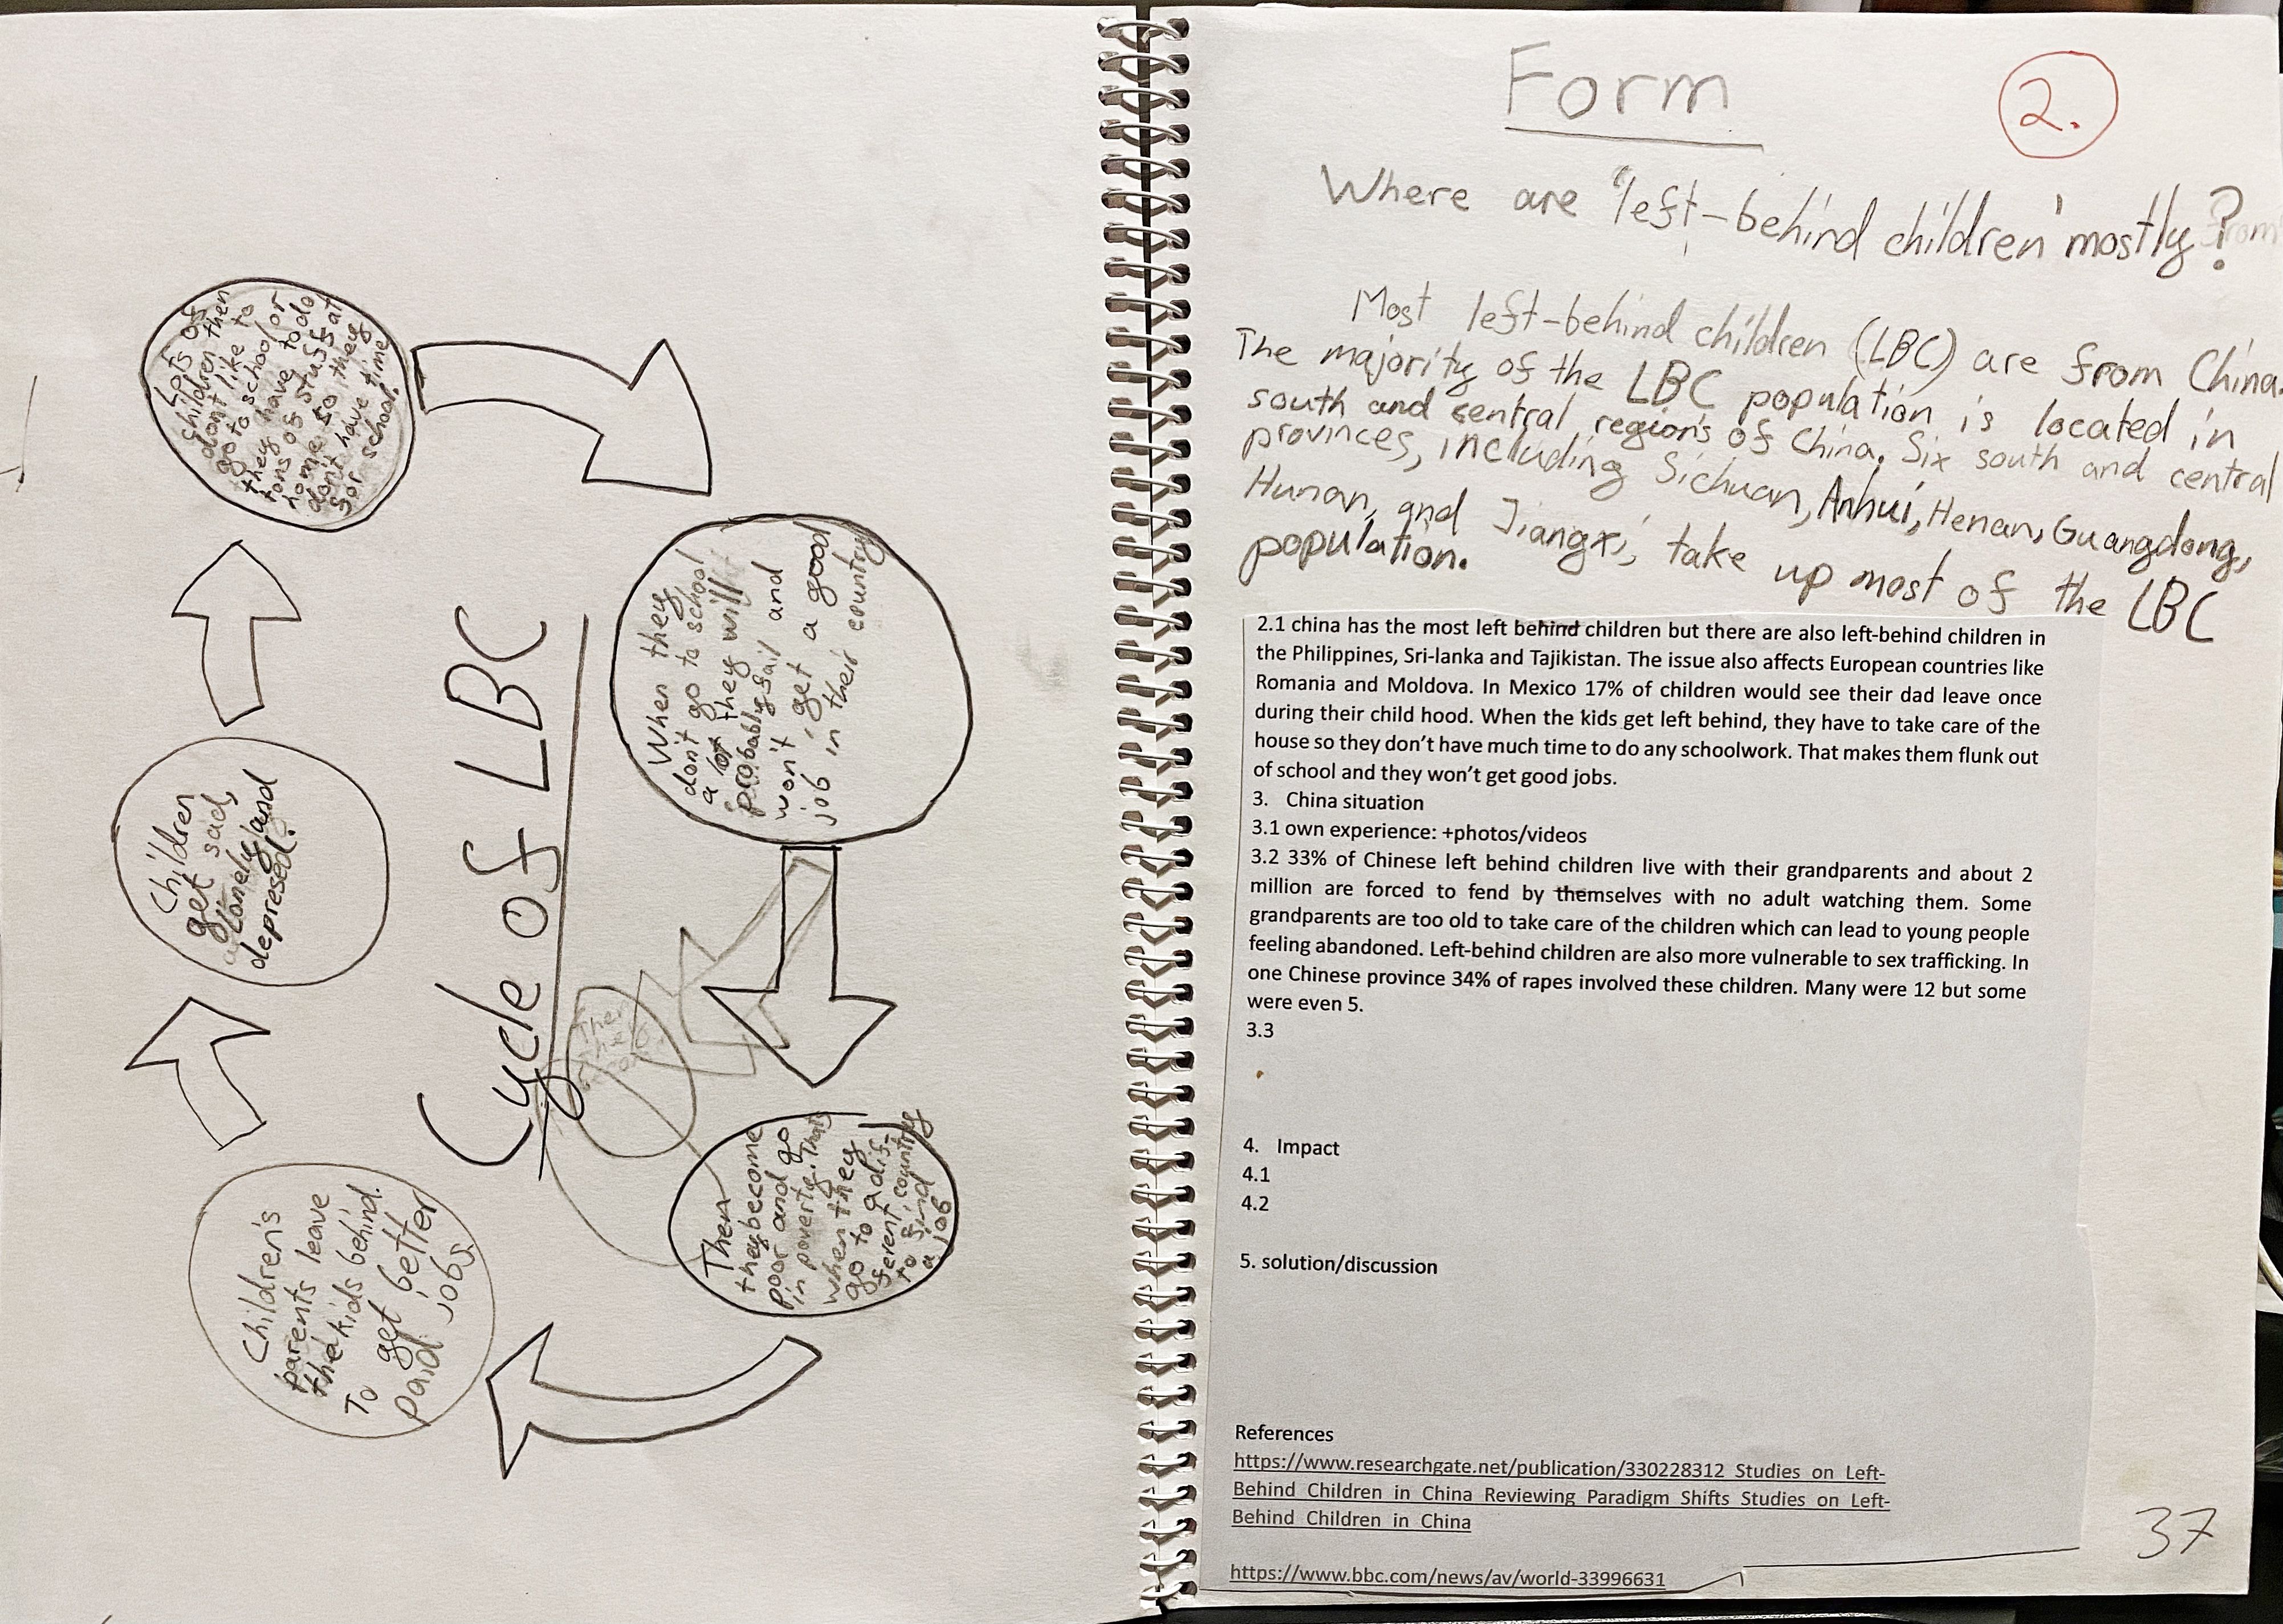 Cycle of LBC
Children's
parents leave
the kids behind.
To get better
paid jobs.
Children
get sad,
lonely and
depresed.
Lots of
children then
don't like to
go to school or
they have to do
tons of stuff at
home so they
don't have time
for school.
When they
don't go to school
a lot they will
probably fail and
won't get a good
job in their country
Then
they become
poor and go
in poverty. Thats
when they
go to a dif-
ferent country
to find
a job
Form
2.
Where are "left-behind children" mostly?
Most left-behind children (LBC) are from China.
The majority of the LBC population is located in
south and central regions of China. Six south and central
provinces, including Sichuan, Anhui, Henan, Guangdong,
Hunan, and Jiangxi, take up most of the LBC
population.
2.1 china has the most left behind children but there are also left-behind children in
the Philippines, Sri-lanka and Tajikistan. The issue also affects European countries like
Romania and Moldova. In Mexico 17% of children would see their dad leave once
during their child hood. When the kids get left behind, they have to take care of the
house so they don't have much time to do any schoolwork. That makes them flunk out
of school and they won't get good jobs.
3. China situation
3.1 own experience: +photos/videos
3.2 33% of Chinese left behind children live with their grandparents and about 2
million are forced to fend by themselves with no adult watching them. Some
grandparents are too old to take care of the children which can lead to young people
feeling abandoned. Left-behind children are also more vulnerable to sex trafficking. In
one Chinese province 34% of rapes involved these children. Many were 12 but some
were even 5.
3.3
4. Impact
4.1
4.2
5. solution/discussion
References
https://www.researchgate.net/publication/330228312 Studies on Left-
Behind Children in China Reviewing Paradigm Shifts Studies on Left-
Behind Children in China
https://www.bbc.com/news/av/world-33996631
37